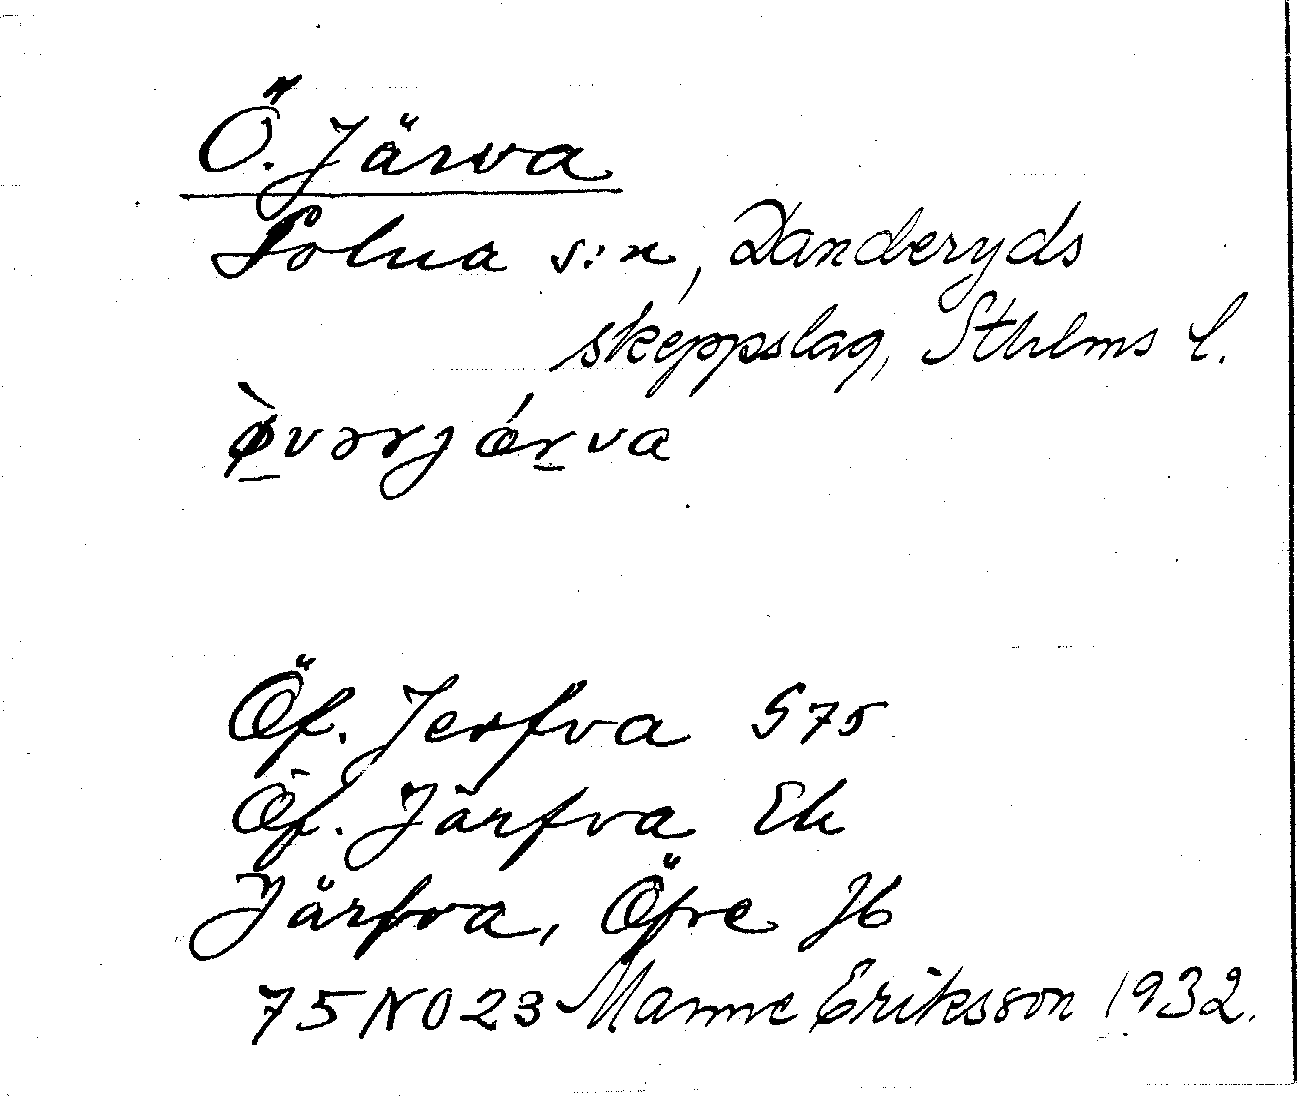 Ö. Järva
Solna s:n, Danderyds
skeppslag, Sthlms l.
Öf. Jerfva S75
Öf. Järfva Ek
Järfva, Öfre Jb
75 NO 23 Manne Eriksson 1932.